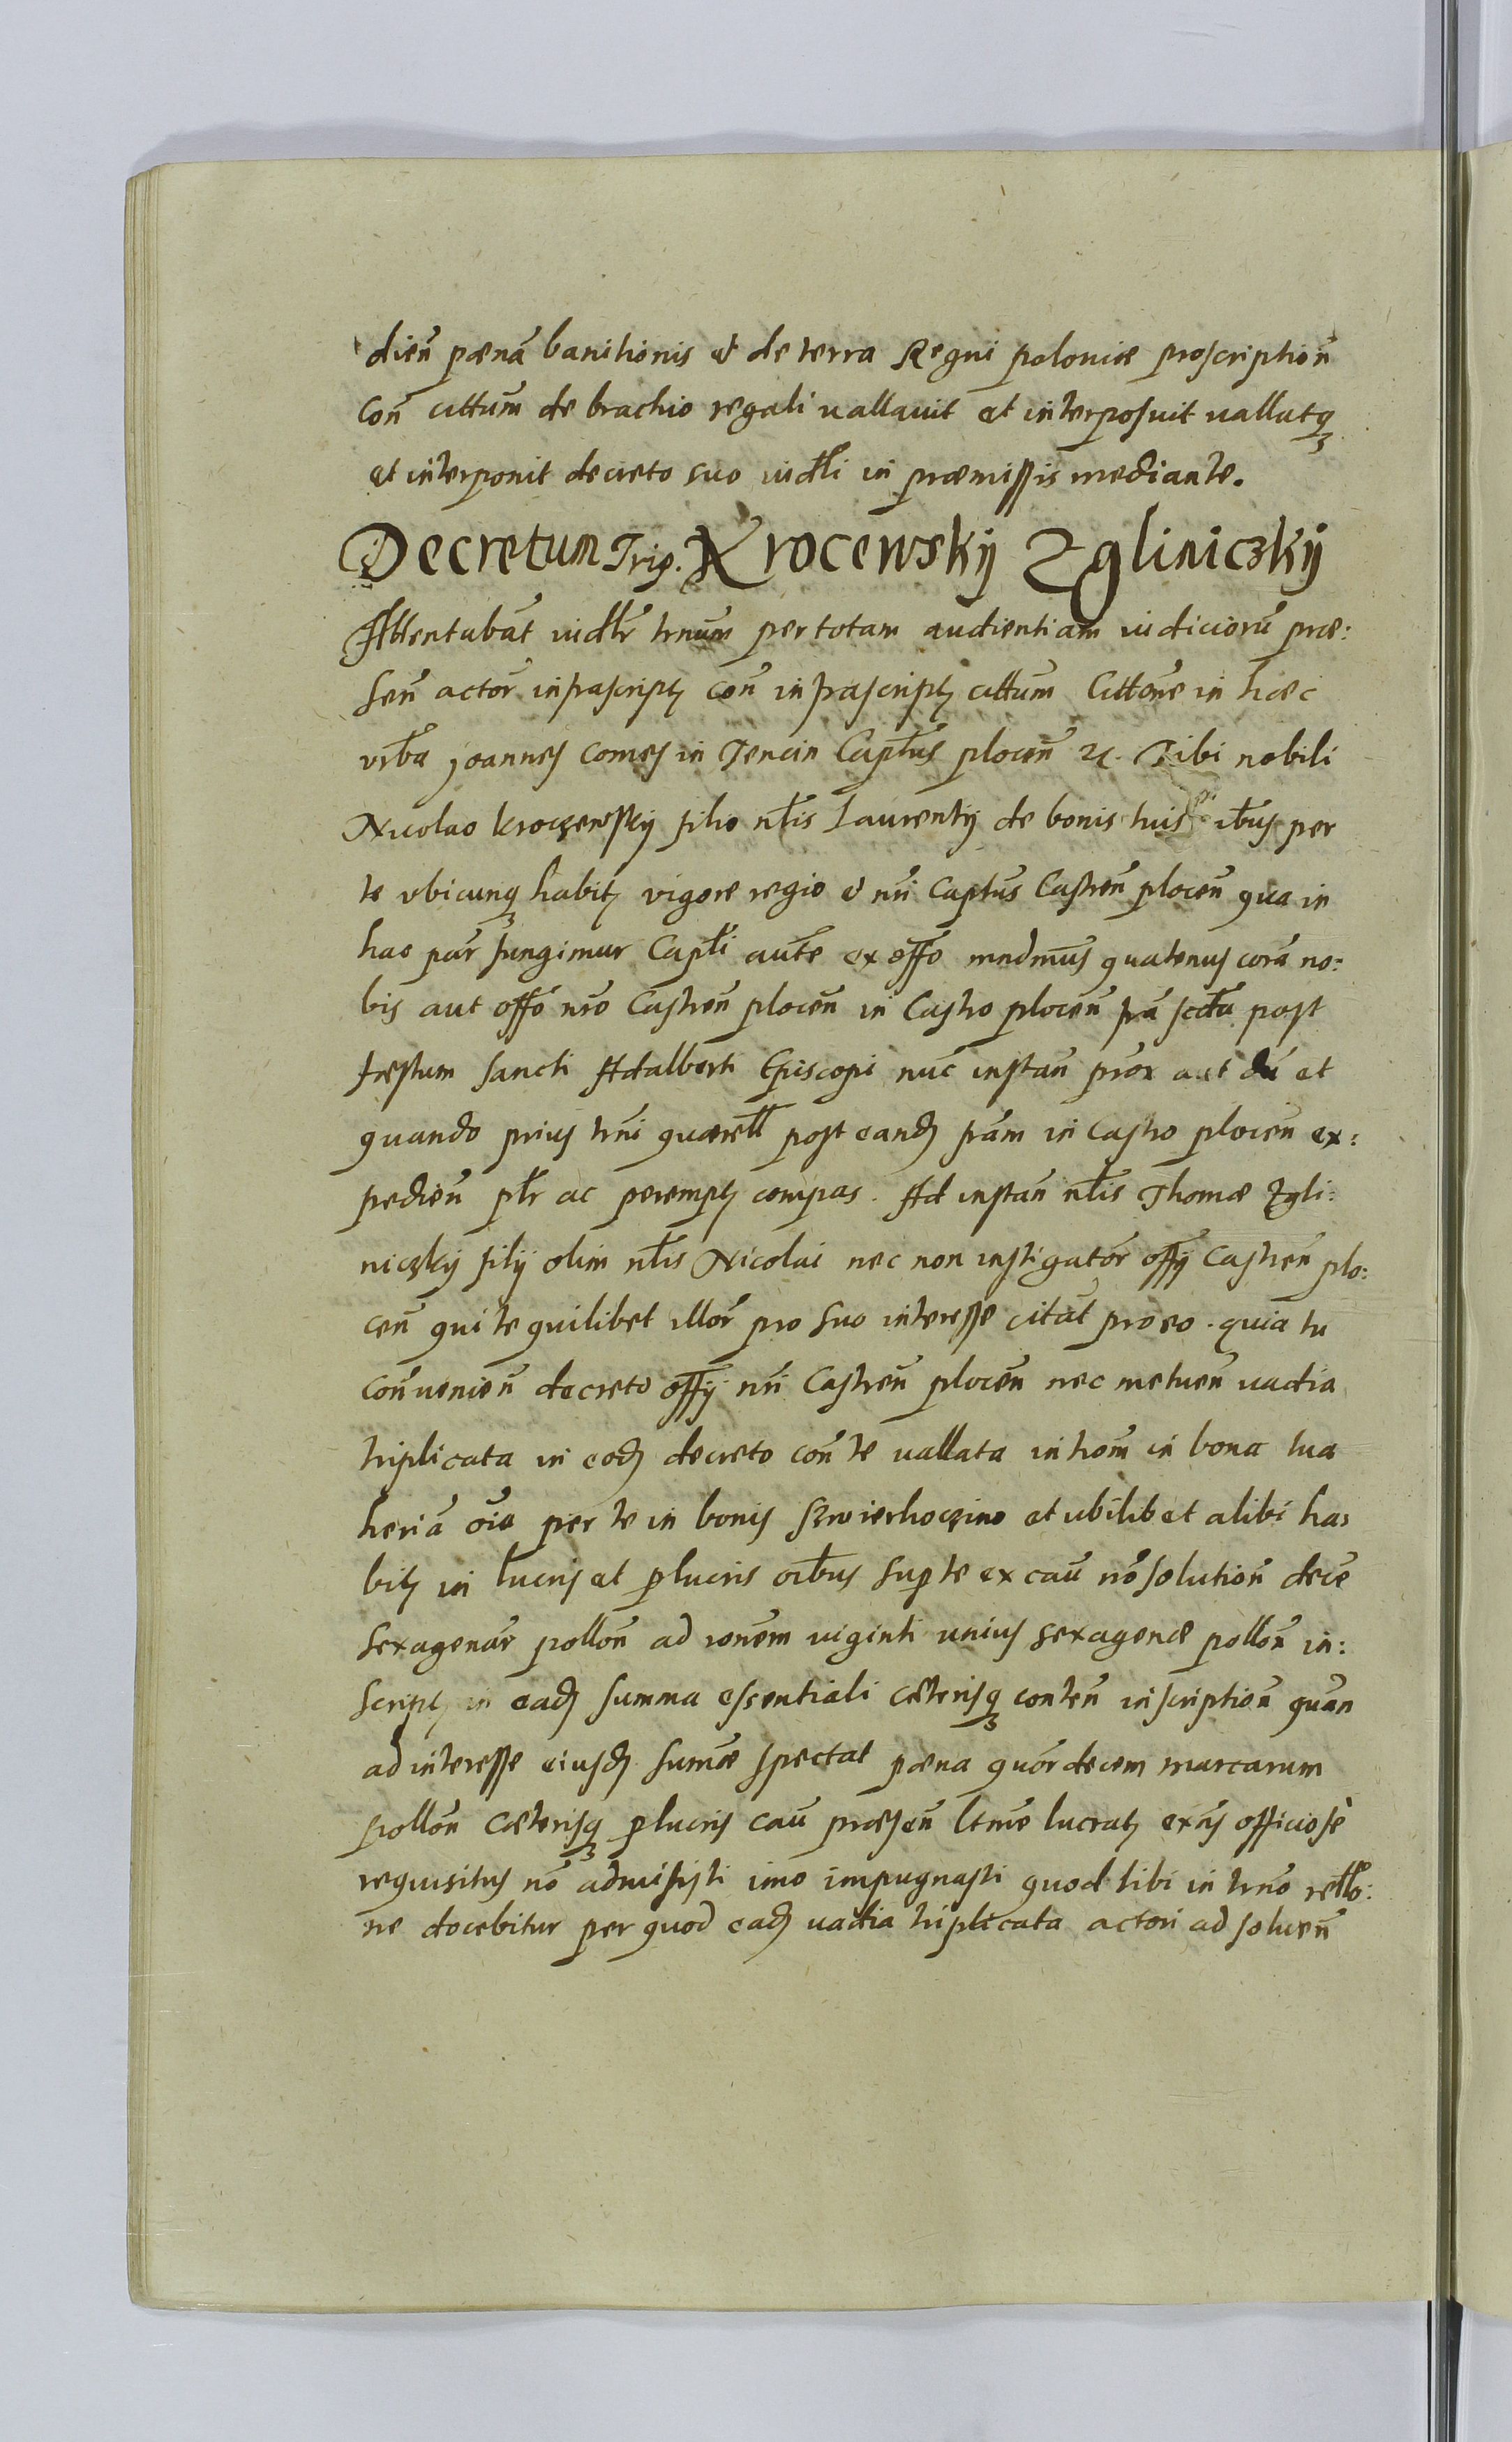 dień pœnā banitionis et de terra Regni poloniæ proscription̄
con̄ cittum̄ de brachio regali vallavit et interposuit vallatq₃
et interponit decreto suo iudłi in præmissis mediante.
Decretum Trip. Krocewskij Zgliniczkij
Attentabāt iudłr trnum̄ per totam audientiam iudiciorū præ:
sen̄ actor̄ infrascriptꝫ con̄ infrascriptꝫ cittum Cittōne in hæc
vrba Joannes Comes in Tencin Capłus plocen̄ ꝛc. Tibi nobili
Nicolao kroczewskij filio nłis Laurentij de bonis tuis per
te vbicunq₃ habitꝫ vigore regio et nri̅ Captus̄ Castren̄ plocen̄ qua in
hac par̄ fungimur Capłi aut̄e ex offo mndmus̄ quatenus corā no:
bis aut offo nr̄o Castren̄ plocen̄ in Castro plocen̄ post
fæstum sancti Adalberti Episcopi nūc instan̄ prox̄ aut dū et
quando prius trn̄i quærełł post eandꝫ frām in Castro plocen̄ ex:
pedien̄ płr ac peremptꝫ compas. Ad instan̄ nłis Thomæ Zgli:
niczkij filij olim nłis Nicolai nec non instigator̄ offij Castren̄ plo:
cen̄ qui te quilibet illor̄ pro suo interesse citāt pro eo. quia tu
Con̄uenien̄ decreto offij nr̄i Castren̄ plocen̄ nec metuen̄ vadia
triplicata in eodꝫ decreto con̄ te vallata introm̄ in bona tua
heriā oīa per te in bonis et ubilibet alibi ha:
bitꝫ in lucris et ꝑlucris oībus supte ex cau̅ nō solution̄ decē
sexagenar̄ pollon̄ ad ronem̄ viginti vnius sexagenæ pollon̄ in:
scriptꝫ in eadꝫ summa essentiali cæterisq₃ conten̄ inscription̄ quan
ad interesse eiusdꝫ sum̄æ spectat pœna quor̄ decem marcarum
pollon̄ Cæterisq₃ ꝑlucris cau̅ præsen̄ ltm̄e lucratꝫ exn̄s officiosè
requisitus nō admisisti imo impugnasti quod tibi in trn̄o rełło:
ne docebitur per quod eadꝫ vadia triplicata actori ad soluen̄